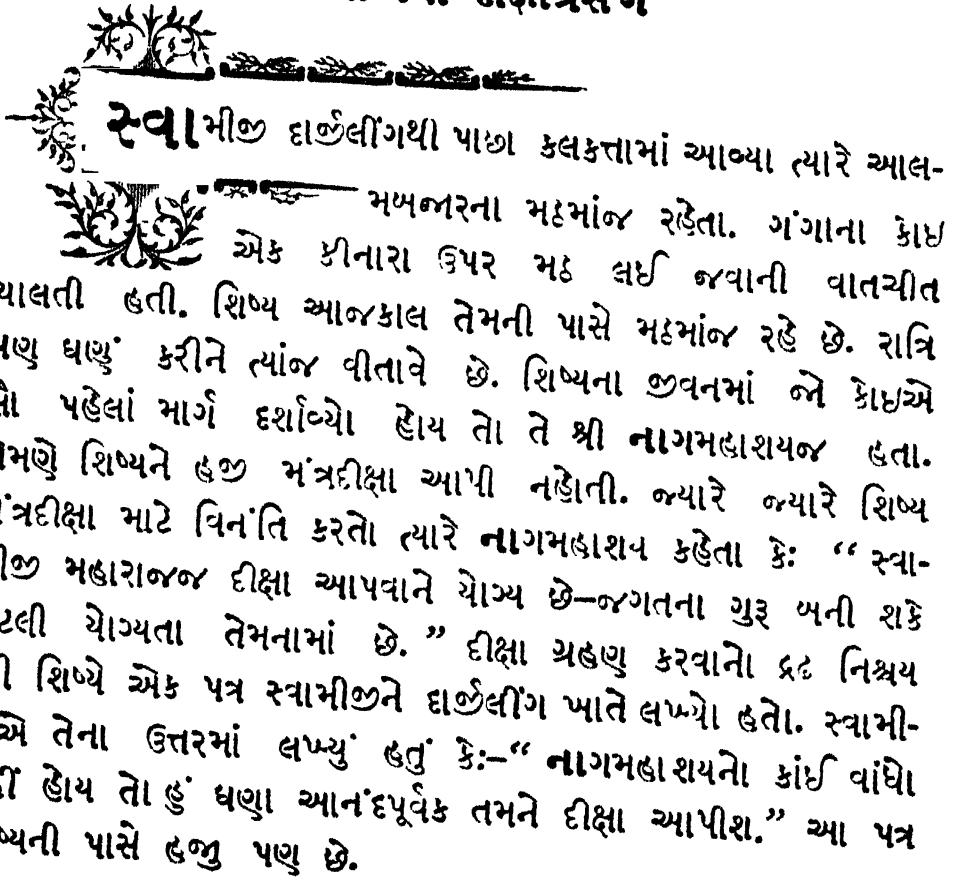 સ્વામીજી દાર્જીલીંગથી પાછા કલકત્તામાં આવ્યા ત્યારે આલ-
મબજારના મઠમાંજ રહેતા. ગંગાના કોઇ
એક કીનારા ઉપર મઠ લઈ જવાની વાતચીત
ચાલતી હતી. શિષ્ય આજકાલ તેમની પાસે મઠમાંજ રહે છે. રાત્રિ
પણ ઘણું કરીને ત્યાંજ વીતાવે છે. શિષ્યના જીવનમાં જો કોઇએ
પહેલાં માર્ગ દર્શાવ્યો હોય તો તે શ્રી નાગમહાશયજ હતા.
શિષ્યને હજી મંત્રદીક્ષા આપી નહોતી. જ્યારે જ્યારે શિષ્ય
મંત્રદીક્ષા માટે વિનંતિ કરતો ત્યારે નાગમહાશય કહેતા કેઃ “ સ્વા-
મીજી મહારાજજ દીક્ષા આપવાને યોગ્ય છે–જગતના ગુરૂ બની શકે
ટલી યોગ્યતા તેમનામાં છે. ” દીક્ષા ગ્રહણ કરવાનો દ્રઢ નિશ્ચય
શિષ્યે એક પત્ર સ્વામીજીને દાર્જીલીંગ ખાતે લખ્યો હતો. સ્વામી-
એ તેના ઉત્તરમાં લખ્યું હતું કેઃ–“ નાગમહાશયનો કાંઈ વાંધો
હોય તો હું ઘણા આનંદપૂર્વક તમને દીક્ષા આપીશ.” આ પત્ર
ષ્યની પાસે હજી પણ છે.